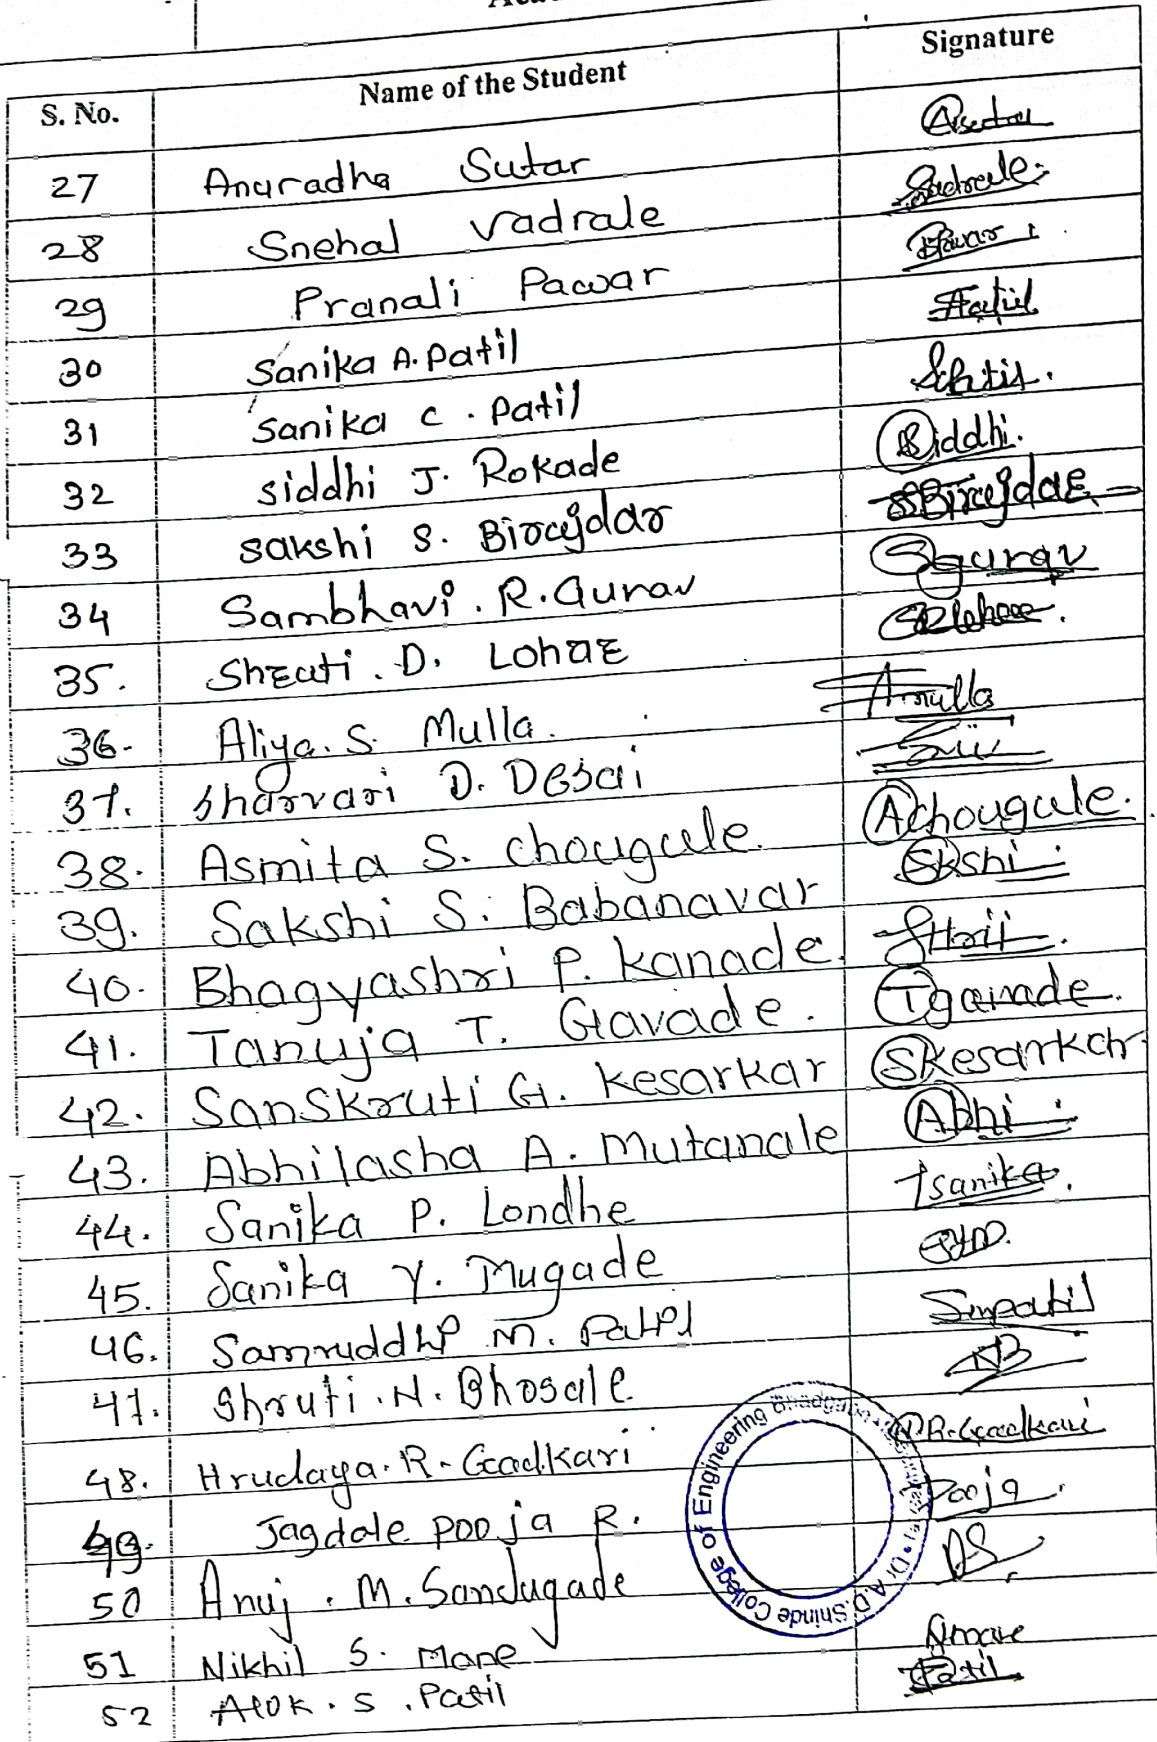 S. No. Name of the Student Signature
27 Anuradha Sutar
28 Snehal Vadrale
29 Pranali Pawar Pawar
30 Sanika A. Patil Patil
31 Sanika C. Patil
32 Siddhi J. Rokade Siddhi.
33 Sakshi S. Birajdar SBirajdar
34 Sambhavi. R. Gurav Sgurav
35. Shruti. D. Lohar
36. Aliya. S. Mulla. Amulla
37. Sharvari D. Desai
38. Asmita S. Chougule. Achougule.
39. Sakshi S. Babanavar Skshi
40. Bhagyashri P. Kanade.
41. Tanuja T. Gavade. Tgavade.
42. Sanskruti G. Kesarkar SKesarkar
43. Abhilasha A. Mutanale Abhi
44. Sanika P. Londhe Sanika.
45. Sanika Y. Mugade
46. Samruddhi M. Patil Smpatil
47. Shruti. N. Bhosale
48. Hrudaya. R. Gadkari R. Gadkari
49. Jagdale Pooja R. Pooja
50 Anuj. M. Sandugade AS
51 Nikhil S. Mane Nmane
52 Alok. S. Patil Patil
Dr. A.D. Shinde College of Engineering Bhadgaon